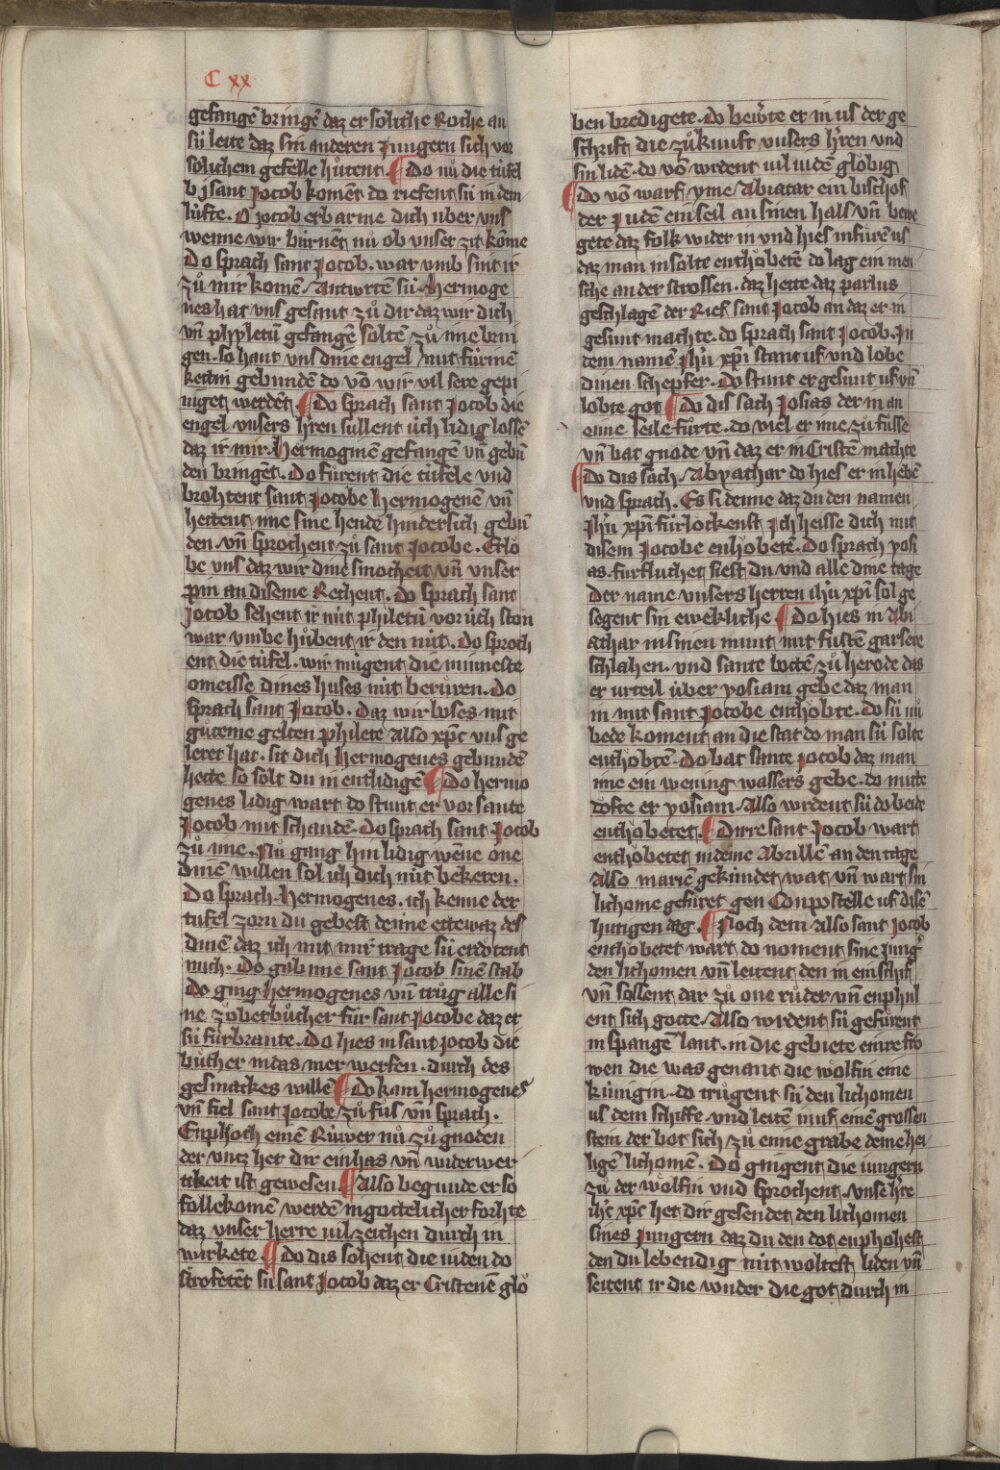 C xx
gefangē bringē daz er soliche Roche an
sü leite daz sin anderen Jungern sich vor
solichem gefelle hůtent. Do nů die tüfel
bi sant Jocob komēt do riefent sü in dem
lüfte. O Jocob erbarme dich uber vns
wenne wir bürnēt nů ob vnser zit kōme
Do sprach sant Jocob. war vmb sint ir
zů mir komē. Antwrtē sü. Hermoge
nes hat vns gesant zů dir daz wir dich
vn̄ phyletū gefangē soltē zů ime brin
gen. so hant vns dine engel mit fürinē
kettin gebundē do vō wir vil sere gepi
niget werdēt Do sprach sant Jocob die
engel vnsers h'ren süllent üch lidig lossē
daz ir mir Hermoginē gefangen vn̄ gebū
den bringēt. Do fürent die tüfele vnd
brohtent sant Jocobe hermogenē vn̄
hettent ime sine hende hindersich gebū
den vn̄ sprochent zů sant Jocobe. Erlo
be vns daz wir dine smocheit vn̄ vnser
pin an diseme Rechent. do sprach sant
Jocob sehent ir nüt philetū vor üch ston
war vmbe hůbent ir den nüt. Do sproch
ent die tüfel. wir mügent die minneste
omeisse dines huses nüt berüren. Do
sprach sant Jocob. daz wir böses mit
gůteme gelten philete also xp̄c vns ge
leret hat. sit dich hermogenes gebundē
hette so solt du in entlidigē Do hermo
genes lidig wart do stunt er vor sante
Jocob mit schandē. Do sprach sant Jocob
zů ime. Nů gang hin lidig wēne one
dinē willen sol ich dich nüt bekeren.
Do sprach Hermogenes. ich kenne der
tufel zorn du gebest denne ettewaz des
dinē daz ich mit mir trage sü erdötent
mich. Do gab ime sant Jocob sinē stab
Do ging hermogenes vn̄ trůg alle si
ne zöberbůcher für sant Jocobe daz er
sü fürbrante. Do hies in sant Jocob die
bůcher in das mer werfen. durch des
gesmackes willē Do kam hermogenes
vn̄ fiel sant Jocobe zů füs vn̄ sprach.
Enphoch einē Rüwer nů zů gnoden
der vntz her dir ein has vn̄ widerwer
tikeit ist gewesen Also begunde er so
follekomē werdē in gottelicher forhte
daz vnser herre vil zeichen durch in
wirkete. Do dis sohent die iuden do
stroftētēt sü sant Jocob daz er Cristenē glo
ben bredigete. do bewrte er in us der ge
schrift die zůkunft vnsers h'ren vnd
sin lidē. do vō wrdent vil iudē glöbig
Do vō warf yme Abiatar ein bischof
der Judē ein seil an sinen hals vn̄ bewe
gete daz folk wider in vnd hies in fürē us
daz man in solte enthöbetē do lag ein men
sche an der strossen. daz hette daz parlus
geschlagē der Rief sant Jocob an daz er in
gesunt machte. do sprach sant Jocob. Jn
dem namē Jhū xp̄i stant uf vnd lobe
dinen schepfer. Do stunt er gesunt uf vn̄
lobte got Do dis sach Josias der in an
eime seile fürte. do viel er ime zů füsse
vn̄ bat gnode vn̄ daz er in Cristē machte
Do dis sach Abyachar do hies er in hebē
vnd sprach. Es si denne daz du den namen
Jhū xp̄i fürlöckenst ich heisse dich mit
disem Jocobe enthöbetē. Do sprach yosi
as. fürfluchet siest du vnd alle dine tage
der name vnsers herren ihū xp̄i sol ge
segent sin ewekliche Do hies in Abi
athar in sinen munt mit füstē gar sere
schlahen. vnd sante bottē zů herode das
er urteil über yosiam gebe daz man
in mit sant Jocobe enthöbte. Do sü nů
bede koment an die stat do man sü solte
enthöbtē. Do bat sante Jocob daz man
ime ein wening wassers gebe. do mitte
döfte er yosiam. Also wrdent sü do beide
enthöbetet. Dirre sant Jocob wart
enthöbetet in deme Abrillē an den tage
Also mariē gekündet wat. vn̄ wart sin
lichome gefüret gen Conpostelle uf disē
hütigen dag. Noch dem also sant Jocob
enthöbetet wart do noment sine Jung'
den lichomen vn̄ leitent den in ein schif
vn̄ sossent dar zů one růder vn̄ enphul
ent sich gotte. Also wrdent sü gefürent
in spangē lant. in die gebiete einre fro
wen die was genant die wolfin eine
künigin. do trůgent sü den lichomen
us dem schiffe. vnd leitē in uf einē grossen
stein der bot sich zů eime grabe deme hei
ligē lichomē. Do gingent die iungern
zů der wölfin vnd sprochent. vnse h're
ih'c xp̄c het dir gesendet den lichomen
sines Jungern daz du den dot enphohest
den du lebendig nüt woltest liden vn̄
seitent ir die wnder die got durch in